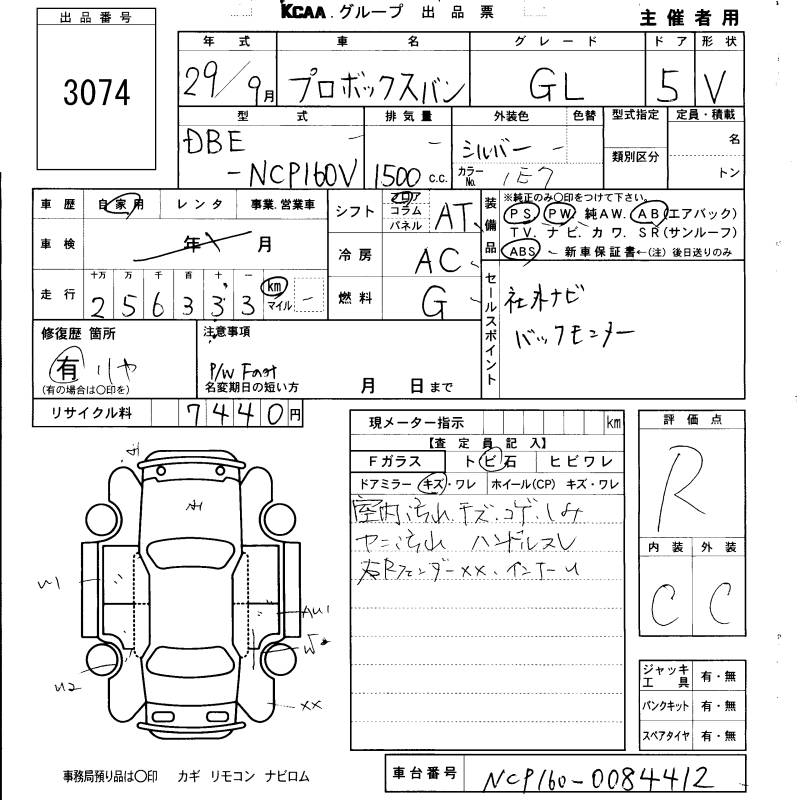 KCAA グループ 出品票
主催者用
出品番号
3074
年式 車名 グレード ドア 形状
29/9月 プロボックスバン GL 5 V
型式 排気量 外装色 色替 型式指定 定員・積載
DBE シルバー 名
-NCP160V 1500 c.c. カラーNo. 1E7 類別区分 トン
車歴 自家用 レンタ 事業.営業車
車検 年 月
走行 十万 万 千 百 十 一
2 5 6 3 3 3 km マイル
シフト フロア コラム パネル AT
冷房 AC
燃料 G
装備品 ※純正のみ○印をつけて下さい。
PS PW 純AW. AB(エアバック)
TV. ナビ. カワ. SR(サンルーフ)
ABS 新車保証書←(注) 後日送りのみ
セールスポイント
社外ナビ
バックモニター
修復歴 箇所
有 リヤ
(有の場合は○印を)
注意事項
P/W Fast
名変期日の短い方 月 日まで
リサイクル料 7440円
現メーター指示 km
【査定員記入】
Fガラス トビ石 ヒビワレ
ドアミラー キズ・ワレ ホイール(CP) キズ・ワレ
室内汚れ.キズ.コゲ.しみ
ヤニ汚れ ハンドルスレ
右Rフェンダーxx.インナーU
評価点
R
内装 外装
C C
U1
AU1
W2
U2
XX
ジャッキ工具 有・無
パンクキット 有・無
スペアタイヤ 有・無
事務局預り品は○印 カギ リモコン ナビロム
車台番号 NCP160-0084412